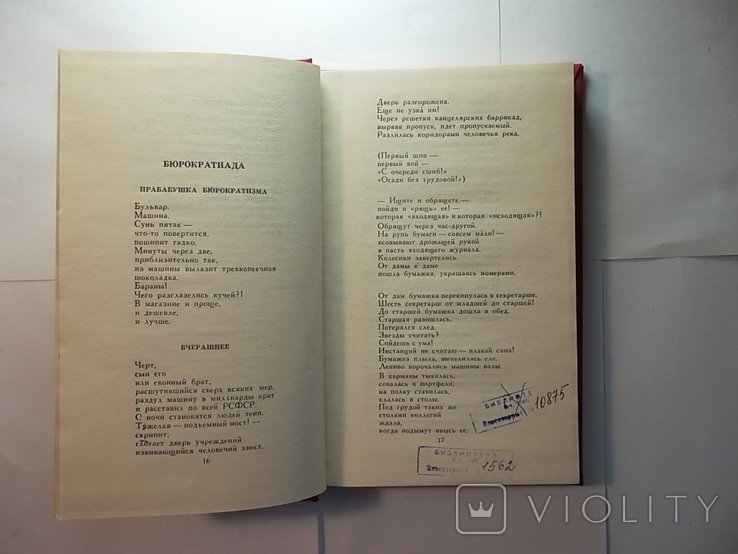 БЮРОКРАТИАДА
ПРАБАБУШКА БЮРОКРАТИЗМА
Бульвар.
Машина.
Сунь пятак —
что-то повертится,
пошипит гадко.
Минуты через две,
приблизительно так,
из машины вылазит трехкопеечная
шоколадка.
Бараны!
Чего разглазелись кучей?!
В магазине и проще,
и дешевле,
и лучше.
ВЧЕРАШНЕЕ
Черт,
сын его
или евонный брат,
расшутившийся сверх всяких мер,
раздул машину в миллиарды крат
и расставил по всей РСФСР.
С ночи становятся людей тени.
Тяжелая — подъемный мост! —
скрипит,
глотает дверь учреждений
извивающийся человечий хвост.
16
Дверь разгорожена.
Еще не узка им!
Через решетки канцелярских баррикад,
вырвав пропуск, идет пропускаемый.
Разлилась коридорами человечья река.
(Первый шип —
первый вой —
«С очереди сшиб!»
«Осади без трудовой!»)
— Ищите и обрящете,—
пойди и «рящь» ее! —
которая «входящая» и которая «исходящая»?!
Обрящут через час-другой.
На рупь бумаги — совсем мало! —
всовывают дрожащей рукой
в пасть входящего журнала.
Колесики завертелись.
От дамы к даме
пошла бумажка, украшаясь номерами.
От дам бумажка перекинулась к секретарше.
Шесть секретарш от младшей до старшей!
До старшей бумажка дошла в обед.
Старшая разошлась.
Потерялся след.
Звезды считать?
Сойдешь с ума!
Инстанций не считаю — плавай сама!
Бумажка плыла, шевелилась еле.
Лениво ворочались машины валы.
В карманы тыкалась,
совалась в портфели,
на полку ставилась,
клалась в столы.
Под грудой таких же
столами коллегий
ждала,
когда подымут ввысь ее,
17
БИБЛИОТЕ
10875
БИБЛИОТЕКА
1562
VIOLITY